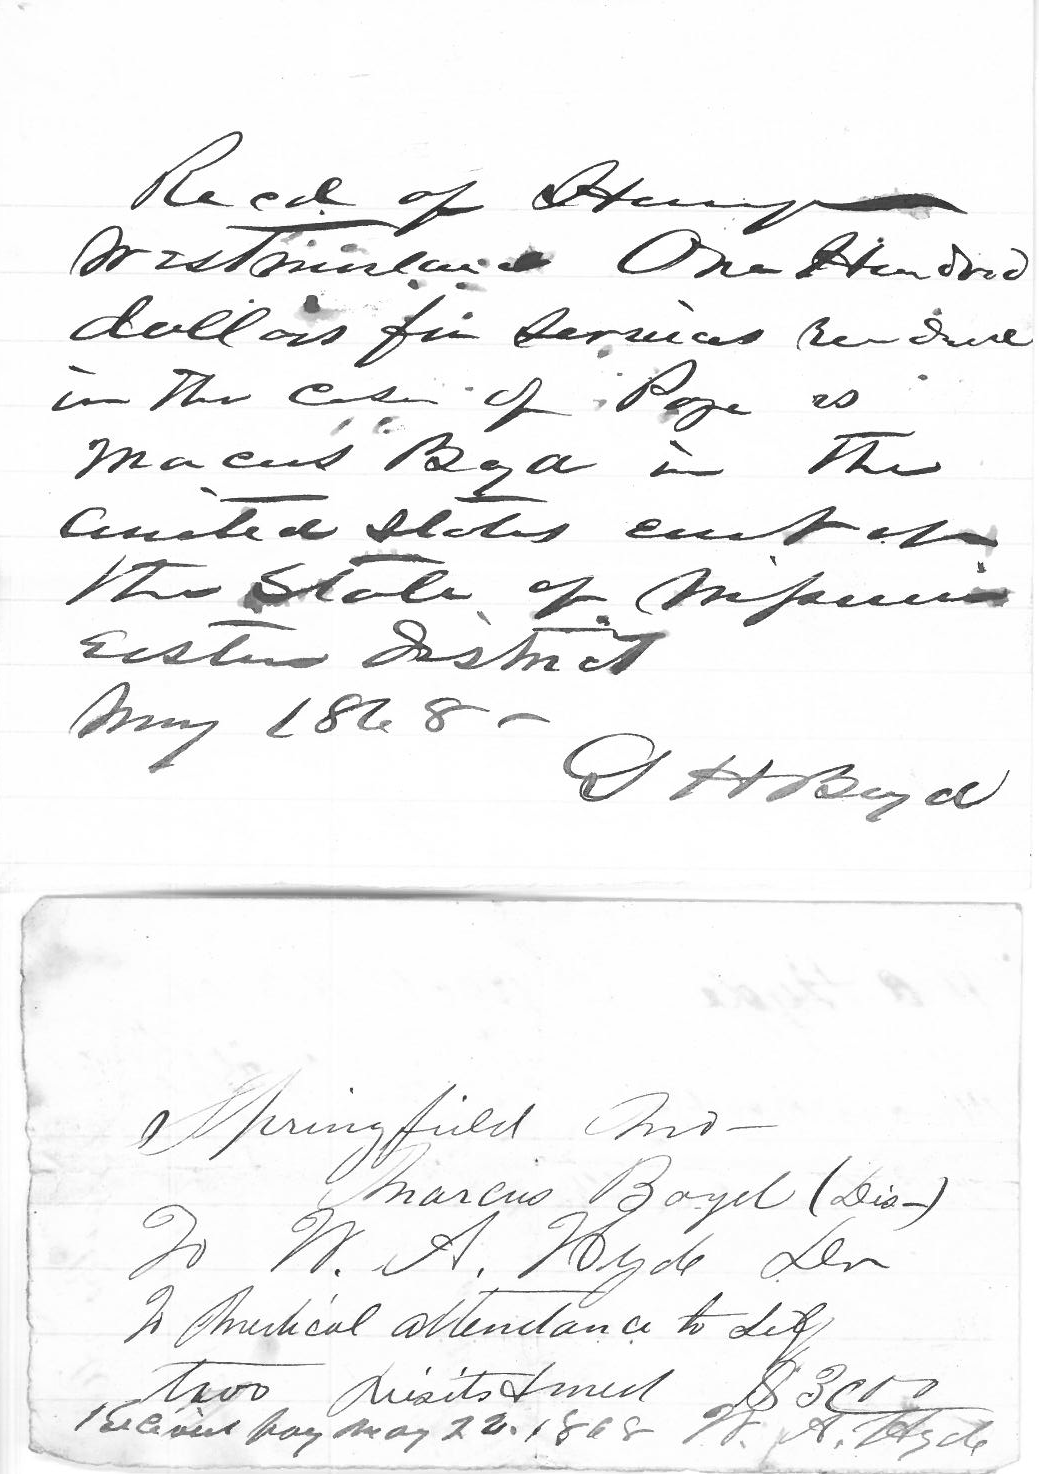 Recd of Henry
Westmoreland One Hundred
dollars for services rendered
in the case of Pope vs
Marcus Boyd in the
United States court of
the State of Missouri
Eastern District
May 1868 -
S H Boyd
Springfield Mo -
Marcus Boyd (Dis-)
To W. A. Hyde Dr
To Medical attendance to self
two visits & med $3.00
Received pay May 22. 1868 W. A. Hyde